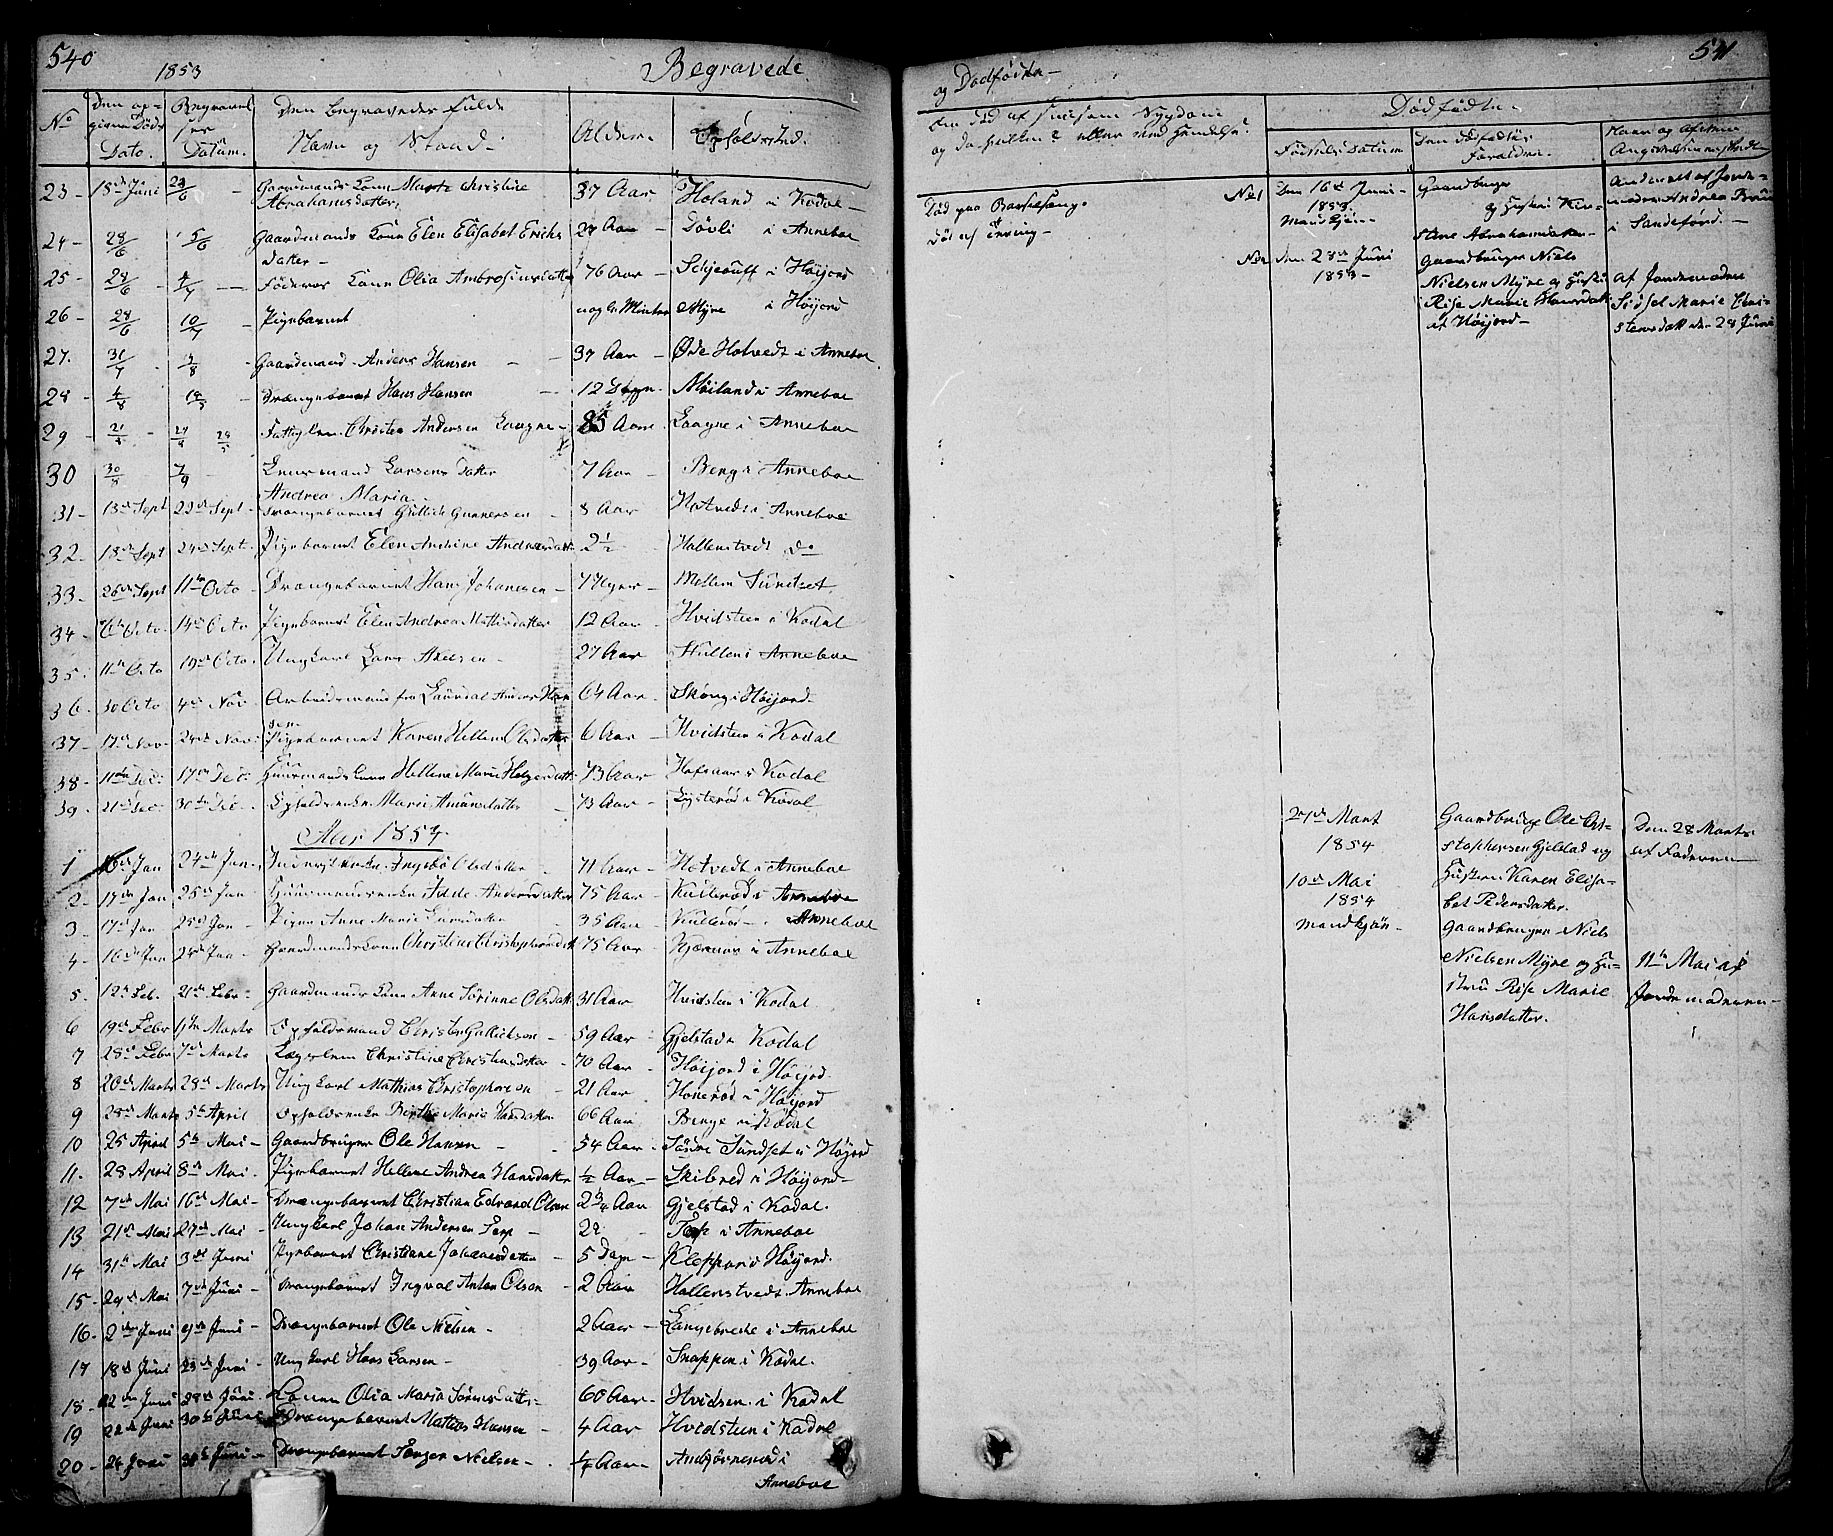 540
1853
Begravede
No
Den op-
givne Døds
Dato.
Begravel
ses
Datum.
Den Begravedes fulde
Navn og Stand.
Alder.
Opholdssted.
23 - 18de Juni 23/6 - Gaardmands Kone Marte Christine 37 Aar - Holand i Kodal -
Abrahamsdatter.
24 - 28/6 5/6 Gaardmands Kone Elen Elisabet Erichs 27 Aar - Døvli i Anneboe
datter -
25 - 28/6 - Føderaads Kone Olia Ambrosiusdatter 76 Aar - i Høijord
26 - 28/6 10/7 Pigebarnet nogle Minter Myre i Høijord
27. 31/7 - 7/8 Gaardmand Anders Hansen - - 37 Aar - Øde Hotvedt i Anneboe
28 - 4/8 - Drængebarnet Hans Hansen - 12 Dage - Møiland i Anneboe
29 - 21/8 - Christen Andersen Laagne - 85 Aar - Laagne i Anneboe
30 30/8 7/9 - Larsens datter 7 Aar - Berg i Anneboe
Andrea Maria
31 - 13de Sept 23de Sept - Drængebarnet Gullich Gunnersen - 8 Aar Hotvedt i Anneboe
32 - 18de Sept 24de Sept. Pigebarnet Elen Andrine Andreasdatt 2 1/2 - Hallenstvedt do
33 - 26de Sept 11te Octo - Drængebarnet Hans Johanesen - 7 Uger - Mellem Sundset,
34 - 6te Octo. 14de Octo Pigebarnet Elen Andrea Mathisdatter 12 Aar - Hvidsteen i Kodal
35 - 11te Octo 19de Octo. Ungkarl Lars Axelsen - 27 Aar - i Anneboe
36 - 30 Octo 4de Nov. Arbeidsmand fra Laurdal Anders Han 64 Aar - Skoug i Høijord -
sen
37 - 17de Nov - 24de Nov. Pigebarnet Karen Hellene Olsdatter 6 Aar - Hvidsteen i Kodal
38 - 11te Dec: 17de Dec: Huusmands Kone Hellene Marie Holgersdatt 73 Aar - Hafsaas i Kodal
39 - 21de Dec. 30te Dec. - Opholdsenke Marie Amundsdatter - 73 Aar - Lysterød i Kodal
Aar 1854.
1 16de Jan 24de Jan. Ingebor Olsdatter - 71 Aar - Hotvedt i Anneboe
2 - 17de Jan 25de Jan - Huusmandsenke Andersdatter 75 Aar - Kullerød i Anneboe
3 - 17de Jan 25de Jan - Pigen Anne Marie Larsdatter - 35 Aar - Kullerød - i Anneboe
4 - 16de Jan 24de Jan - Gaardmands Kone Christine Christophersdatt 75 Aar - Kjærnaas i Anneboe
5. 12te Feb. 21de Febr - Gaardmands Kone Anne Sørinne Olsdatt 31 Aar Hvidsteen i Kodal
6 19de Febr 1ste Marts Opholdsmand Christen Gullichsen - 59 Aar - Gjelstad i Kodal
7 28de Febr 7de Marts Lægslem Christine Christiansdatter - 70 Aar - Høijord i Høijord
8 20de Marts 28de Marts Ungkarl Mathias Christophersen - 21 Aar Honerød i Høijord
9 28de Marts 5te April Opholdsenke Birthe Maria Hansdatter 66 Aar Berge i Kodal
10 25 April 5te Mai - Gaardbruger Ole Hansen - 54 Aar - Søndre Sundset i Høijord
11. 28 April 8de Mai. Pigebarnet Hellene Andrea Hansdatter 1/2 Aar - Skibred i Høijord -
12 7de Mai 16de Mai - Drængebarnet Christian Edvard Olsen 2 3/4 Aar Gjelstad i Kodal.
13 21de Mai 27de Mai - Ungkarl Johan Andersen Torp - 22 Torp i Anneboe
14 31te Mai 3de Juni Pigebarnet Christiane Johannesdatter - 5 Dage - Kleppan i Høijord.
15 - 29de Mai 7de Juni - Drængebarnet Ingval Anton Olsen - 2 Aar Hallenstvedt i Anneboe
16. 2den Juni 9de Juni - Drængebarnet Ole Nielsen - 2 Aar - Langebrekke i Anneboe
17 18de Juni 23de Juni - Ungkarl Hans Larsen - 39 Aar - Snappen i Kodal.
18 - 22de Juni 29de Juni - Konen Olia Maria Sørensdatt - 60 Aar - Hvidsten i Kodal
19 22de Juni 30te Juni - Drængebarnet Mathias Hansen - 4 Aar Hvidsteen i Kodal
20 - 24 Juni 30te Juni - Drængebarnet Nielsen - . Aar - i
Anneboe
541
og Dødfødte -
Den død af Sygdom
og da hvilken? eller ved Hendelse?
Dødfødte.
Fødsels Datum
Den Dødfødtes
Forældre.
Død paa Barselseng.
Død af
No 1
Den 16de Juni -
1853.
Mandkjøn -
Gaardbruger
og Hustru Kir-
stine Abrahamsdatter -
Anderd. af Jorde-
moder Andrea
i Sandefiord. -
No 2
den 28de Juni
1853 -
Gaardbruger Niels
Nielsen Myre og Hustru
Rise Marie Hansdatt
af Høijord -
Af Jordemoder
Sidsel Marie Cris-
stensdatt den 28 Juni
27de Mart
1854
Gaardbruger Ole Cri-
stophersen Gjelstad og
Hustru Karen Elisa-
bet Pedersdatter.
Dem 28 Marts
af Faderen
10de Mai
1854
mandkjøn -
Gaardbruger Niels
Nielsen Myre og Hu-
stru Rise Marie
Hansdatter.
11te Mai af
Jordemoderen -